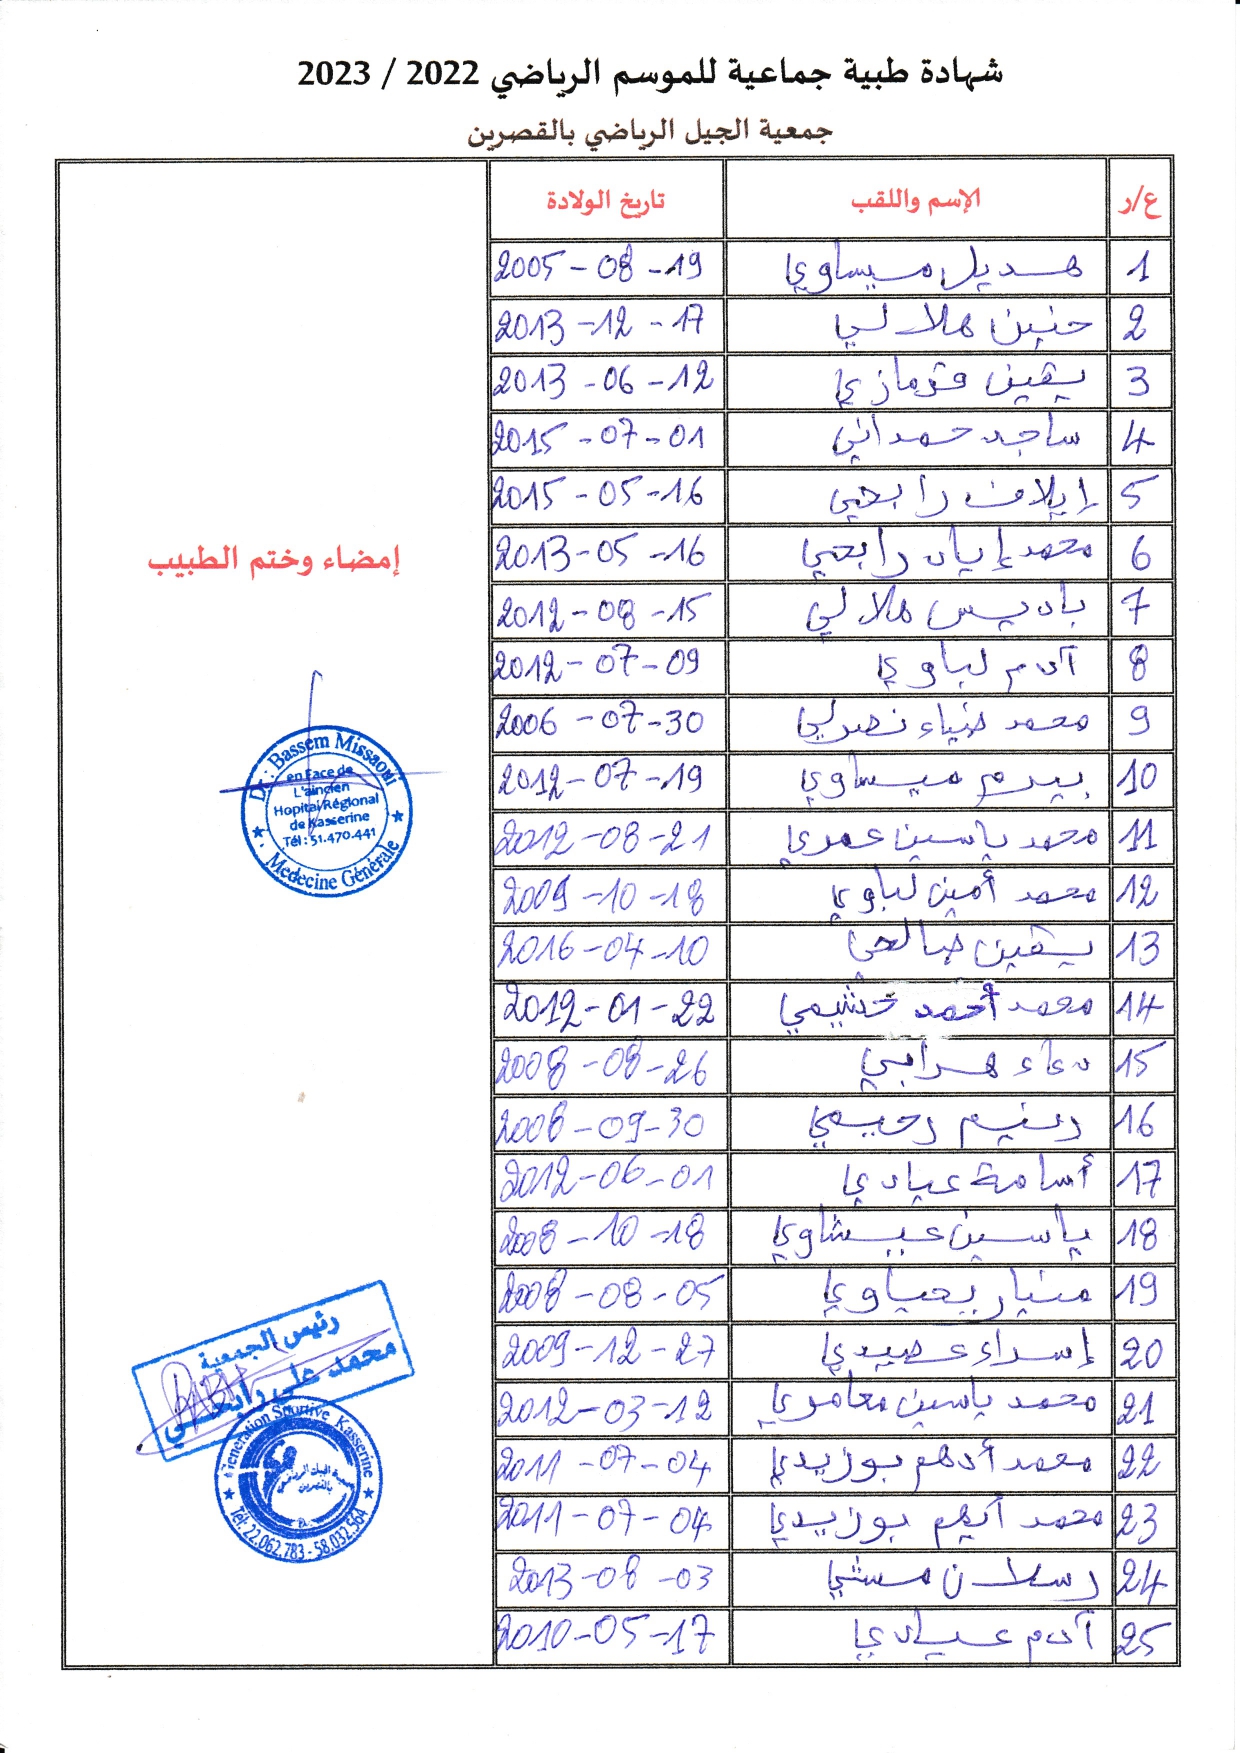 شهادة طبية جماعية للموسم الرياضي 2022 / 2023
جمعية الجيل الرياضي بالقصرين
ع/ر الإسم واللقب تاريخ الولادة
1 هديل ميساوي 2005-08-19
2 حنين هلالي 2013-12-17
3 يقين قرمازي 2013-06-12
4 ساجد حمداني 2015-07-01
5 إيلاف رابحي 2015-05-16
6 محمد إياد رابحي 2013-05-16
7 باديس هلالي 2012-08-15
8 آدم لباوي 2012-07-09
9 محمد ضياء نصرلي 2006-07-30
10 بيرم ميساوي 2012-07-19
11 محمد ياسين عمري 2012-08-21
12 محمد أمين لباوي 2009-10-18
13 يقين صالحي 2016-04-10
14 محمد أحمد خشيمي 2012-01-22
15 دعاء هرابي 2008-08-26
16 رنيم رحيمي 2006-09-30
17 أسامة عيادي 2012-06-01
18 ياسين عيشاوي 2008-10-18
19 منيار يحياوي 2008-08-05
20 إسراء عصيدي 2009-12-27
21 محمد ياسين معامري 2012-03-12
22 محمد أدهم بوزيدي 2011-07-04
23 محمد أيهم بوزيدي 2011-07-04
24 رسلان مستي 2013-08-03
25 آدم عيادي 2010-05-17
إمضاء وختم الطبيب
Dr : Bassem Missaoui
en Face de
L'aincien
Hopital Régional
de Kasserine
Tél : 51.470.441
Medecine Générale
رئيس الجمعية
محمد علي رابحي
Generation Sportive Kasserine
Tél: 22.062.783 - 58.032.564